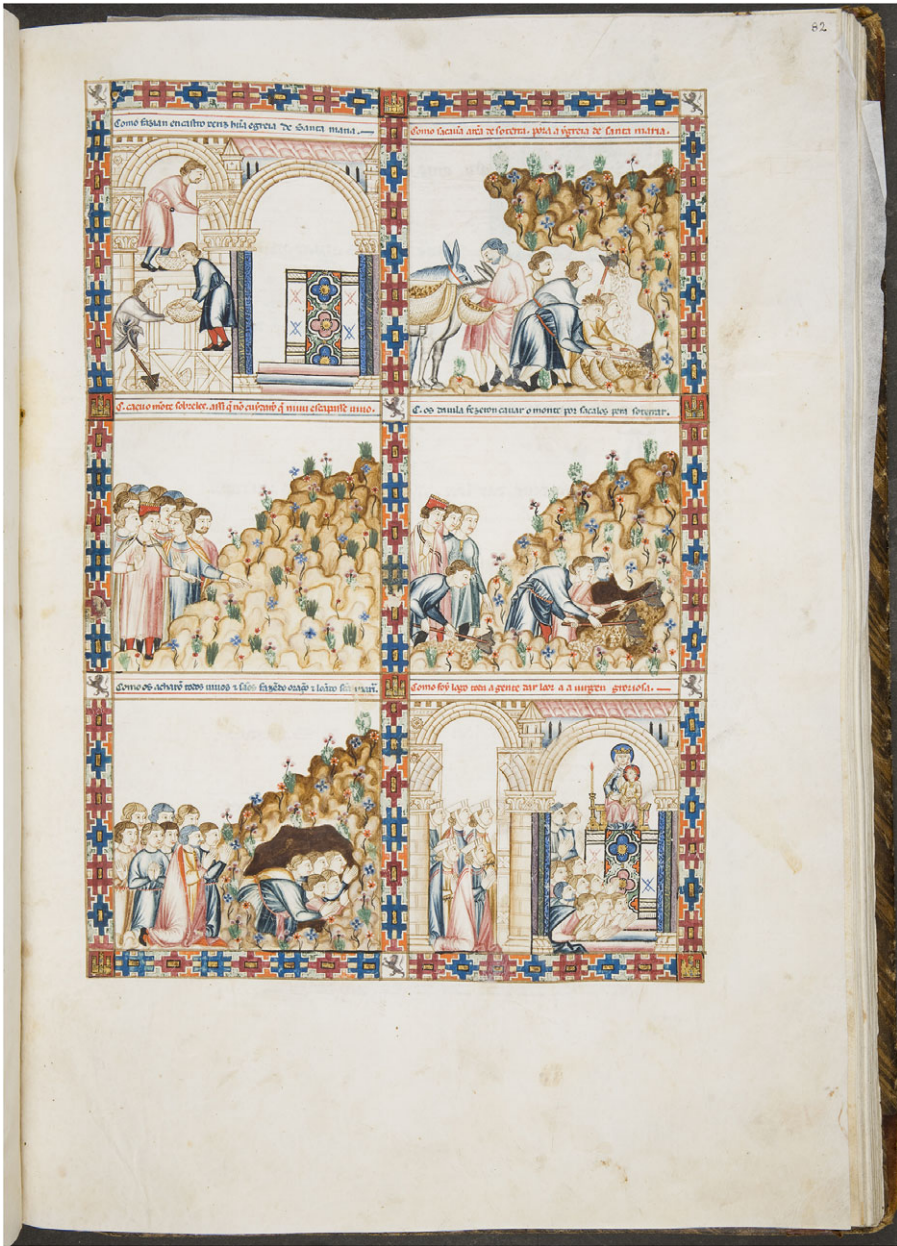 82
Como fazian en castro xeriz hũa egreia de Santa maria.
Como sacavã area de soterra, pera a ygreia de santa maria.
C. caeu o mõte sobreles. assi q̃ nõ cuydarõ q̃ nĩuu escapasse uiuo.
C. os da uila fezeron cauar o monte por sacalos pera soterrar.
Como os acharõ todos uiuos ⁊ sãos fazẽdo oraçõ ⁊ loãdo
Como foy logo toda gente dar loor a a uirgen groriosa.